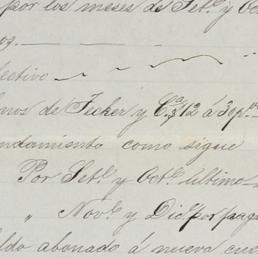 por los meses de Set.e y Oct
fectivo
mos de Fecker y C.a á 30 p.
ndamiento como sigue
Por Set.e y Oct.e último
" Nov.e y Dic.e por paga
ldo abonado á nueva cue